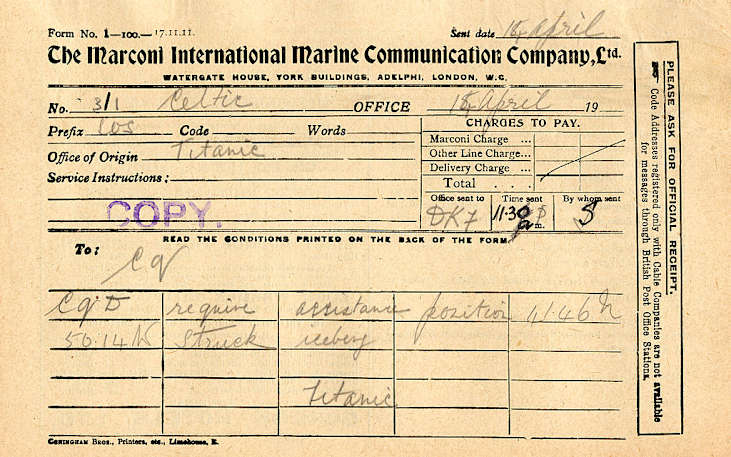 Form No. 1—100.— 17.11.11. Sent date 14 April
The Marconi International Marine Communication Company, Ltd.
WATERGATE HOUSE, YORK BUILDINGS, ADELPHI, LONDON, W.C.
No. 3/1 Celtic OFFICE 14 April 19
Prefix Code Words
CHARGES TO PAY.
Office of Origin Titanic
Service Instructions:
Marconi Charge ...
Other Line Charge...
Delivery Charge ...
Total . . .
Office sent to Time sent By whom sent
11.30 m. S
COPY.
READ THE CONDITIONS PRINTED ON THE BACK OF THE FORM.
To: CQ
CQD require assistance position 41.46 N
50.14 W struck iceberg
Titanic
CONINGHAM BROS., Printers, etc., Limehouse, E.
PLEASE ASK FOR OFFICIAL RECEIPT.
Code Addresses registered only with Cable Companies are not available
for messages through British Post Office Stations.